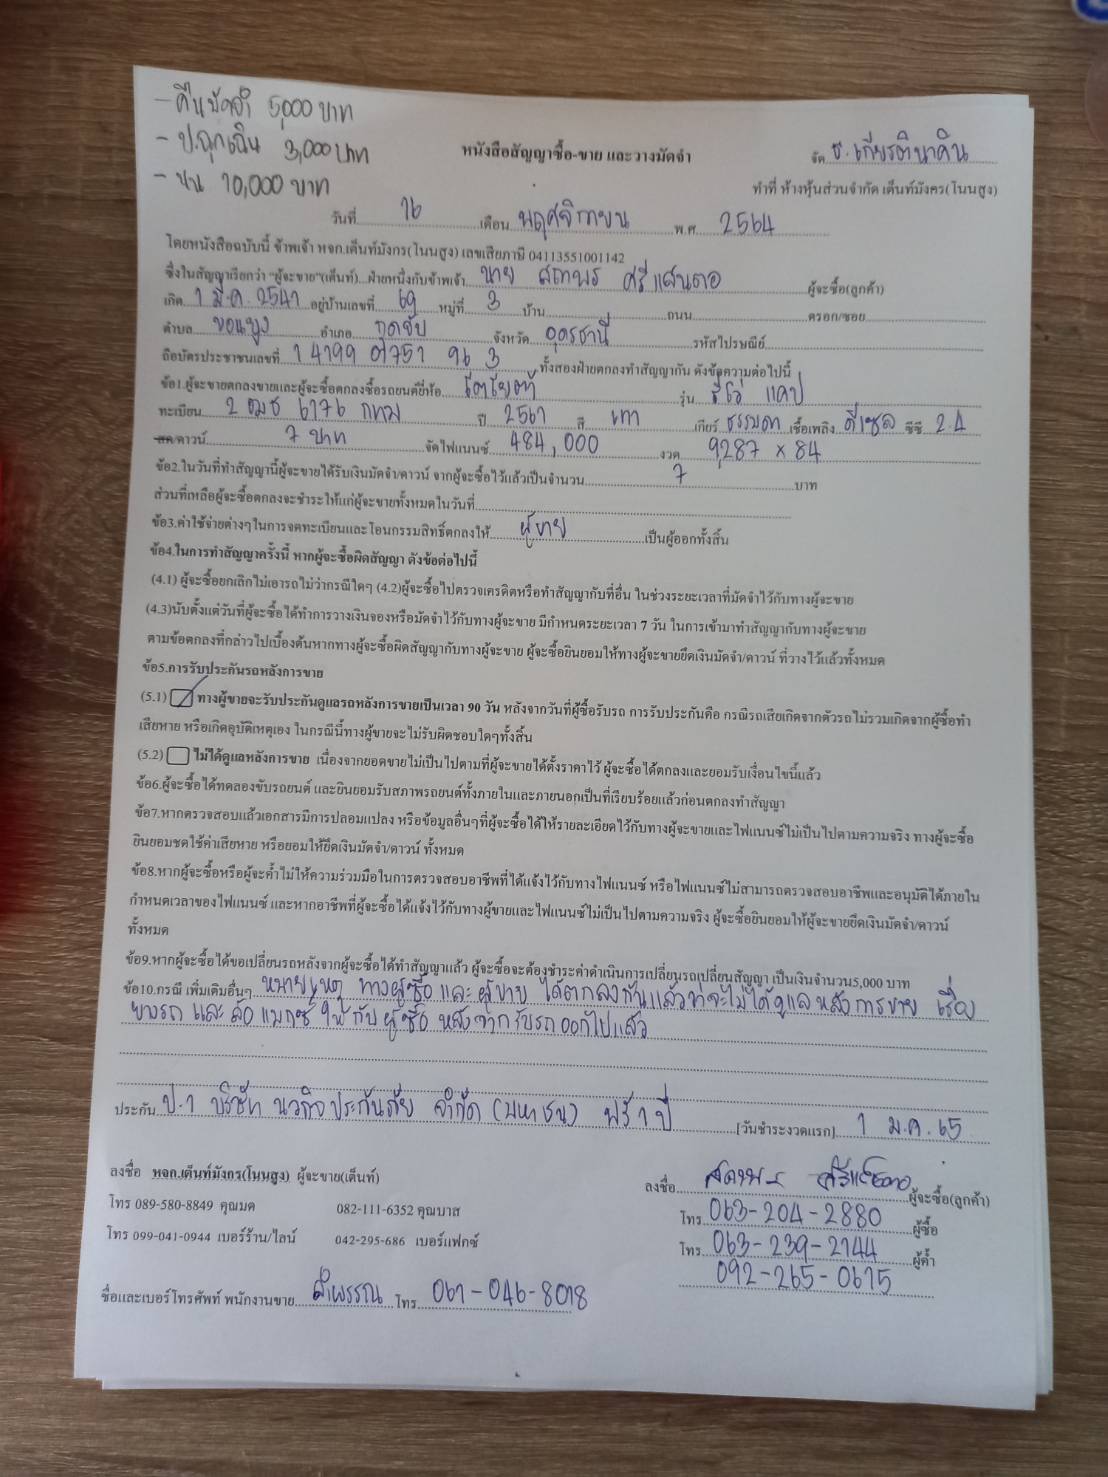 - คืนมัดจำ 5,000 บาท
- ป.ฉุกเฉิน 3,000 บาท
- 10,000 บาท
หนังสือสัญญาซื้อ-ขาย และวางมัดจำ
จัด ธ.เกียรตินาคิน
ทำที่ ห้างหุ้นส่วนจำกัด เต็นท์มังคร(โนนสูง)
วันที่ 16 เดือน พฤศจิกายน พ.ศ. 2564
โดยหนังสือฉบับนี้ ข้าพเจ้า หจก.เต็นท์มังกร(โนนสูง) เลขเสียภาษี 04113551001142
ซึ่งในสัญญาเรียกว่า "ผู้จะขาย"(เต็นท์)...ฝ่ายหนึ่งกับข้าพเจ้า นาย สถาพร ศรีแสนตอ ผู้จะซื้อ(ลูกค้า)
เกิด 1 มี.ค. 2541 อยู่บ้านเลขที่ 69 หมู่ที่ 3 บ้าน ถนน ตรอก/ซอย
ตำบล ขอนยูง อำเภอ กุดจับ จังหวัด อุดรธานี รหัสไปรษณีย์
ถือบัตรประชาชนเลขที่ 1 4199 01751 96 3 ทั้งสองฝ่ายตกลงทำสัญญากัน ดังข้อความต่อไปนี้
ข้อ1.ผู้จะขายตกลงขายและผู้จะซื้อตกลงซื้อรถยนต์ยี่ห้อ โตโยต้า รุ่น รีโว่ แคป
ทะเบียน 2 ฒธ 6176 กทม ปี 2561 สี เทา เกียร์ ธรรมดา เชื้อเพลิง ดีเซล ซีซี 2.4
สด/ดาวน์ 7 บาท จัดไฟแนนซ์ 484,000 งวด 9,287 × 84
ข้อ2.ในวันที่ทำสัญญานี้ผู้จะขายได้รับเงินมัดจำ/ดาวน์ จากผู้จะซื้อไว้แล้วเป็นจำนวน 7 บาท
ส่วนที่เหลือผู้จะซื้อตกลงจะชำระให้แก่ผู้จะขายทั้งหมดในวันที่
ข้อ3.ค่าใช้จ่ายต่างๆในการจดทะเบียนและโอนกรรมสิทธิ์ตกลงให้ ผู้ขาย เป็นผู้ออกทั้งสิ้น
ข้อ4.ในการทำสัญญาครั้งนี้ หากผู้จะซื้อผิดสัญญา ดังข้อต่อไปนี้
(4.1) ผู้จะซื้อยกเลิกไม่เอารถไม่ว่ากรณีใดๆ (4.2)ผู้จะซื้อไปตรวจเครดิตหรือทำสัญญากับที่อื่น ในช่วงระยะเวลาที่มัดจำไว้กับทางผู้จะขาย
(4.3)นับตั้งแต่วันที่ผู้จะซื้อได้ทำการวางเงินจองหรือมัดจำไว้กับทางผู้จะขาย มีกำหนดระยะเวลา 7 วัน ในการเข้ามาทำสัญญากับทางผู้จะขาย
ตามข้อตกลงที่กล่าวไปเบื้องต้นหากทางผู้จะซื้อผิดสัญญากับทางผู้จะขาย ผู้จะซื้อยินยอมให้ทางผู้จะขายยึดเงินมัดจำ/ดาวน์ ที่วางไว้แล้วทั้งหมด
ข้อ5.การรับประกันรถหลังการขาย
(5.1) ทางผู้ขายจะรับประกันดูแลรถหลังการขายเป็นเวลา 90 วัน หลังจากวันที่ผู้ซื้อรับรถ การรับประกันคือ กรณีรถเสียเกิดจากตัวรถ ไม่รวมเกิดจากผู้ซื้อทำ
เสียหาย หรือเกิดอุบัติเหตุเอง ในกรณีนี้ทางผู้ขายจะไม่รับผิดชอบใดๆทั้งสิ้น
(5.2) ไม่ได้ดูแลหลังการขาย เนื่องจากยอดขายไม่เป็นไปตามที่ผู้จะขายได้ตั้งราคาไว้ ผู้จะซื้อได้ตกลงและยอมรับเงื่อนไขนี้แล้ว
ข้อ6.ผู้จะซื้อได้ทดลองขับรถยนต์ และยินยอมรับสภาพรถยนต์ทั้งภายในและภายนอกเป็นที่เรียบร้อยแล้วก่อนตกลงทำสัญญา
ข้อ7.หากตรวจสอบแล้วเอกสารมีการปลอมแปลง หรือข้อมูลอื่นๆที่ผู้จะซื้อได้ให้รายละเอียดไว้กับทางผู้จะขายและไฟแนนซ์ไม่เป็นไปตามความจริง ทางผู้จะซื้อ
ยินยอมชดใช้ค่าเสียหาย หรือยอมให้ยึดเงินมัดจำ/ดาวน์ ทั้งหมด
ข้อ8.หากผู้จะซื้อหรือผู้จะค้ำไม่ให้ความร่วมมือในการตรวจสอบอาชีพที่ได้แจ้งไว้กับทางไฟแนนซ์ หรือไฟแนนซ์ไม่สามารถตรวจสอบอาชีพและอนุมัติได้ภายใน
กำหนดเวลาของไฟแนนซ์ และหากอาชีพที่ผู้จะซื้อได้แจ้งไว้กับทางผู้ขายและไฟแนนซ์ไม่เป็นไปตามความจริง ผู้จะซื้อยินยอมให้ผู้จะขายยึดเงินมัดจำ/ดาวน์
ทั้งหมด
ข้อ9.หากผู้จะซื้อได้ขอเปลี่ยนรถหลังจากผู้จะซื้อได้ทำสัญญาแล้ว ผู้จะซื้อจะต้องชำระค่าดำเนินการเปลี่ยนรถเปลี่ยนสัญญา เป็นเงินจำนวน5,000 บาท
ข้อ10.กรณี เพิ่มเติมอื่นๆ หมายเหตุ ทางผู้ซื้อ และ ผู้ขาย ได้ตกลงกันแล้วว่าจะไม่ได้ดูแล หลังการขาย เรื่อง
ยางรถ และ ล้อ แมกซ์ ให้ กับ ผู้ซื้อ หลังจากรับรถออกไปแล้ว
ประกัน ป.1 บริษัท นวกิจประกันภัย จำกัด (มหาชน) ฟรี 1 ปี [วันชำระงวดแรก] 1 ม.ค. 65
ลงชื่อ หจก.เต็นท์มังกร(โนนสูง) ผู้จะขาย(เต็นท์)
ลงชื่อ สถาพร ศรีแสนตอ ผู้จะซื้อ(ลูกค้า)
โทร 089-580-8849 คุณมด 082-111-6352 คุณบาส
โทร 063-204-2880 ผู้ซื้อ
โทร 099-041-0944 เบอร์ร้าน/ไลน์ 042-295-686 เบอร์แฟกซ์
โทร 063-239-2144 ผู้ค้ำ
092-265-0615
ชื่อและเบอร์โทรศัพท์ พนักงานขาย ลำพรรณ โทร 061-046-8018